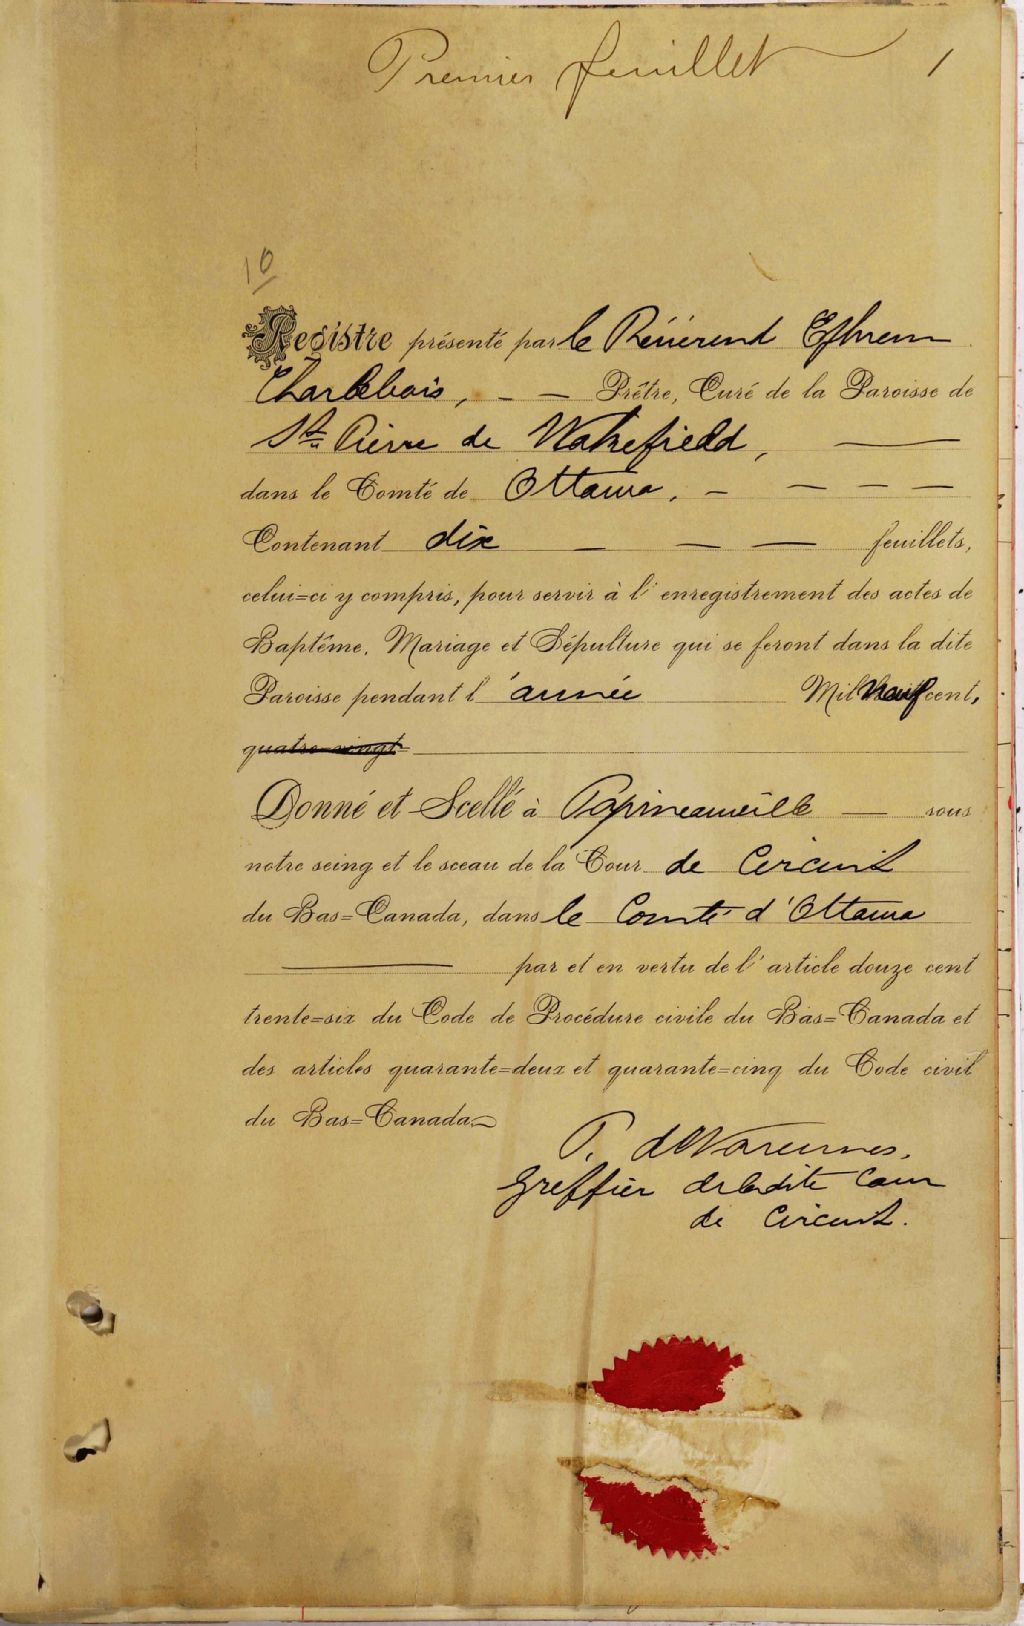 Premier feuillet 1
10
Registre présenté par le Révérend Ephrem
Charlebois, — — Prêtre, Curé de la Paroisse de
St. Pierre de Wakefield, —
dans le Comté de Ottawa, — — — —
Contenant dix — — — feuillets,
celui=ci y compris, pour servir à l'enregistrement des actes de
Baptême, Mariage et Sépulture qui se feront dans la dite
Paroisse pendant l'année Mil neuf cent,
quatre-vingt-
Donné et Scellé à Papineauville — sous
notre seing et le sceau de la Cour de Circuit
du Bas=Canada, dans le Comté d'Ottawa
— par et en vertu de l'article douze cent
trente=six du Code de Procédure civile du Bas=Canada et
des articles quarante=deux et quarante=cinq du Code civil
du Bas=Canada.
P. deVarennes,
Greffier de ladite Cour
de Circuit.